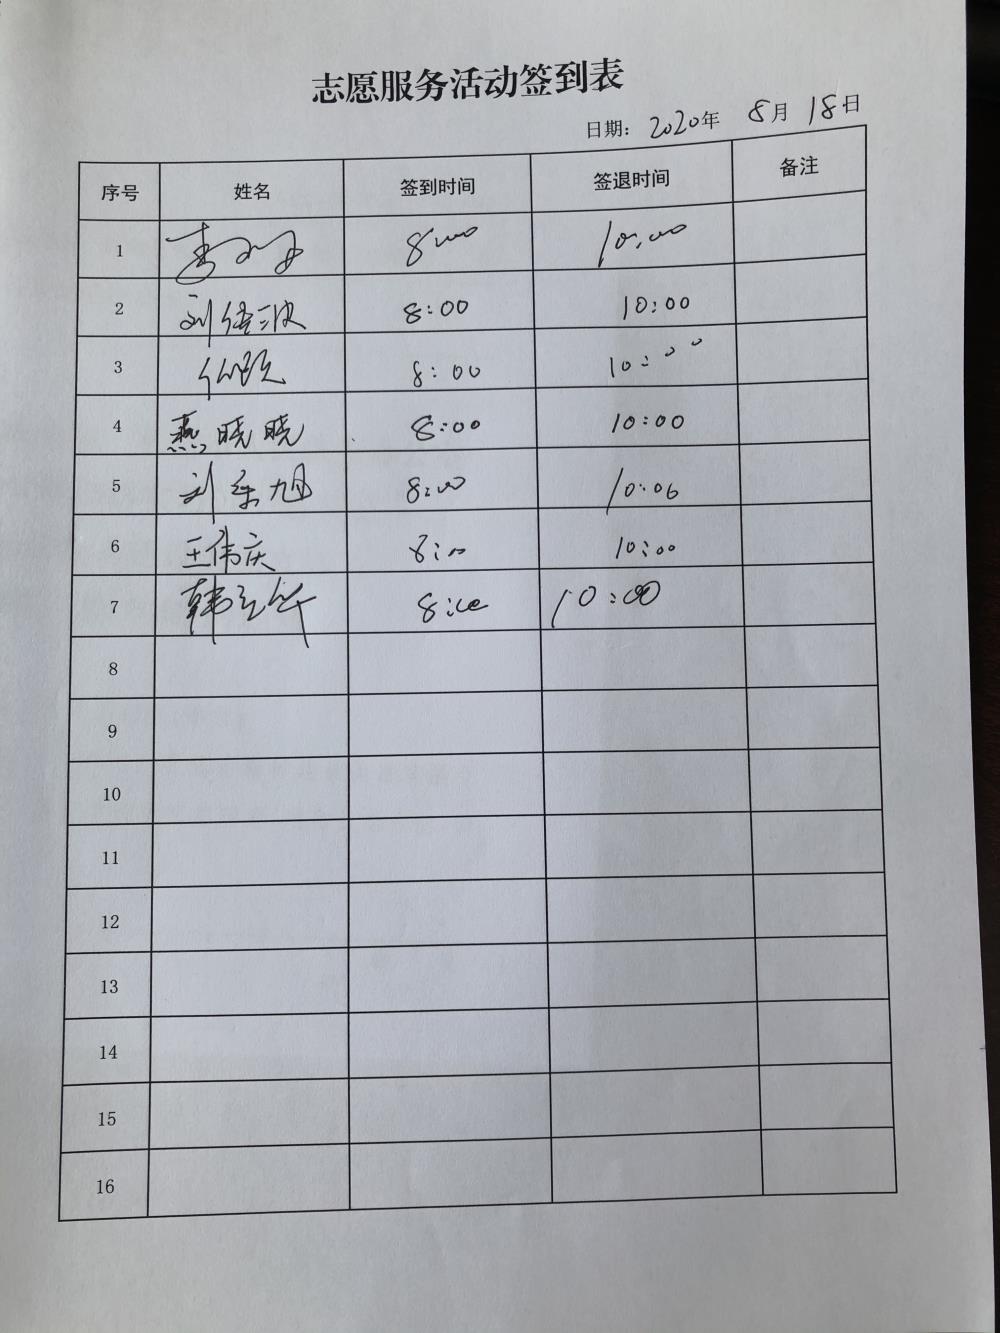 志愿服务活动签到表
日期: 2020年 8月 18日
序号 姓名 签到时间 签退时间 备注
1 8:00 10:00
2 8:00 10:00
3 8:00 10:00
4 燕晓晓 8:00 10:00
5 刘乐旭 8:00 10:00
6 王伟庆 8:00 10:00
7 8:00 10:00
8
9
10
11
12
13
14
15
16